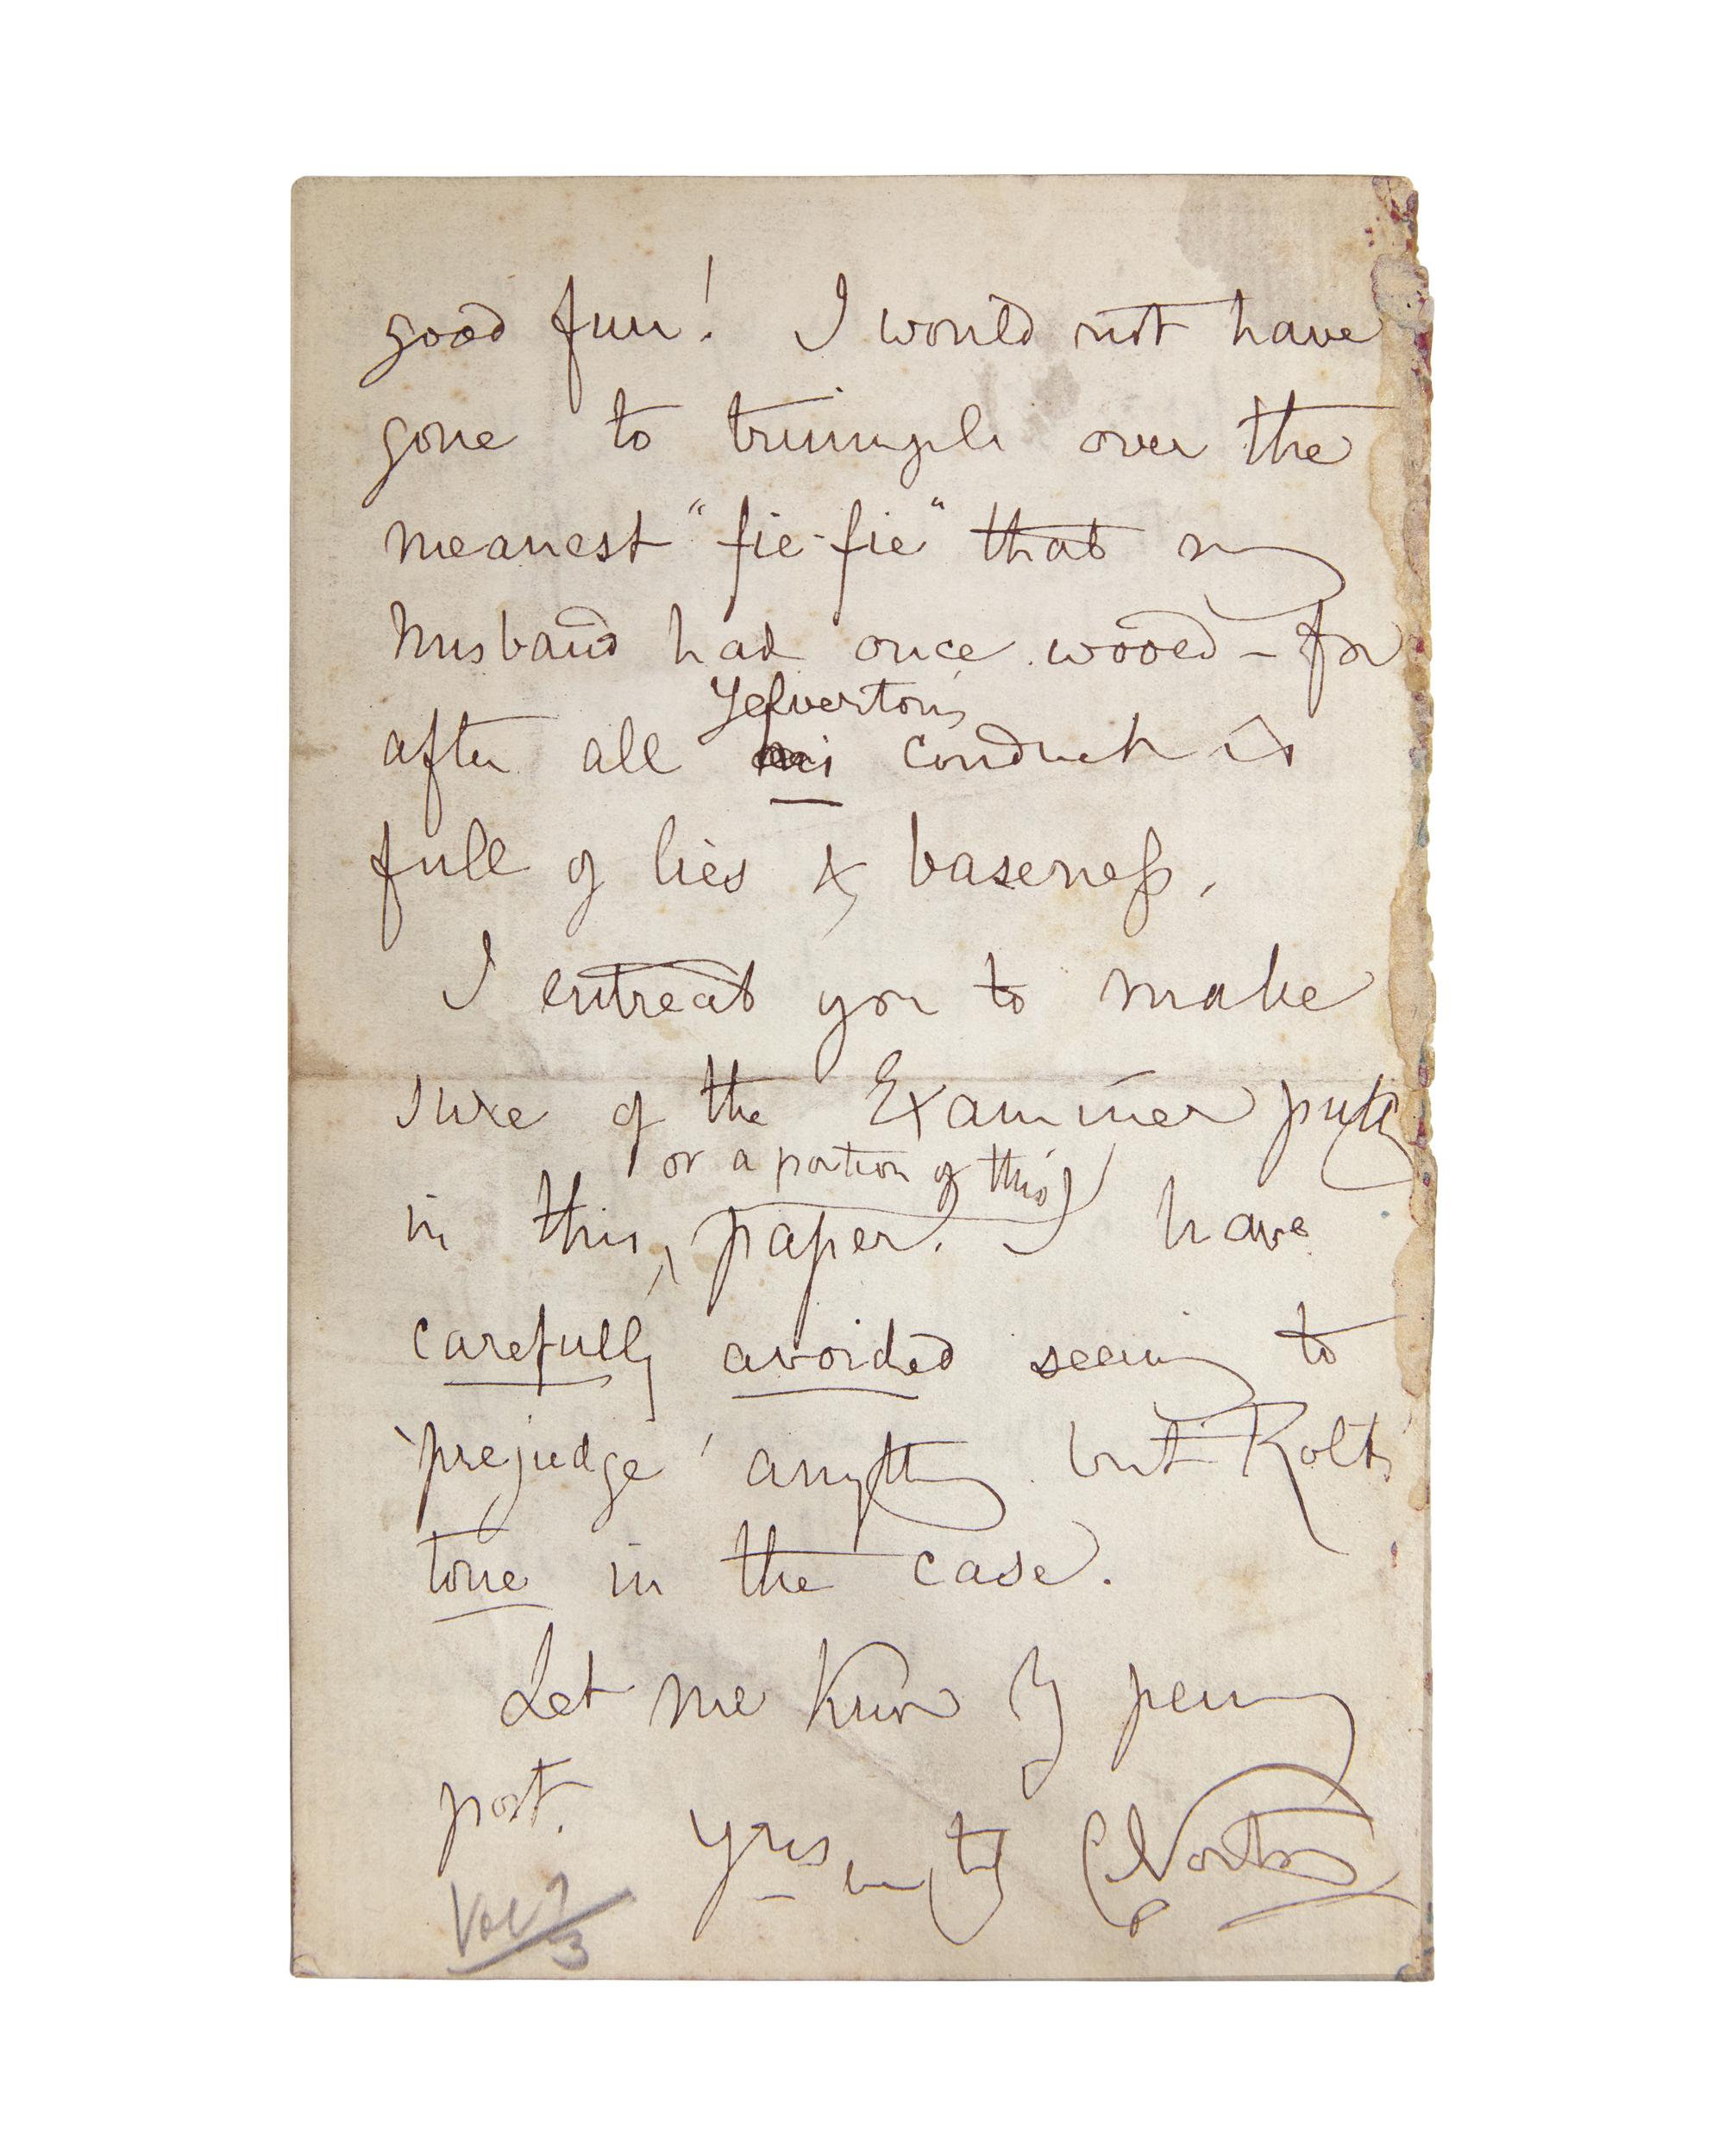 good fun! I would not have
gone to triumph over the
meanest "fie-fie" that my
husband had once wooed – for
Yelverton's
after all his conduct is
full of lies & baseness.
I entreat you to make
sure of the Examiner putting
or a portion of this
in this, paper. I have
carefully avoided seeming to
'prejudge' anything but Rolt's
tone in the case.
Let me know by penny
post.
Yrs CNorton
Vol
3